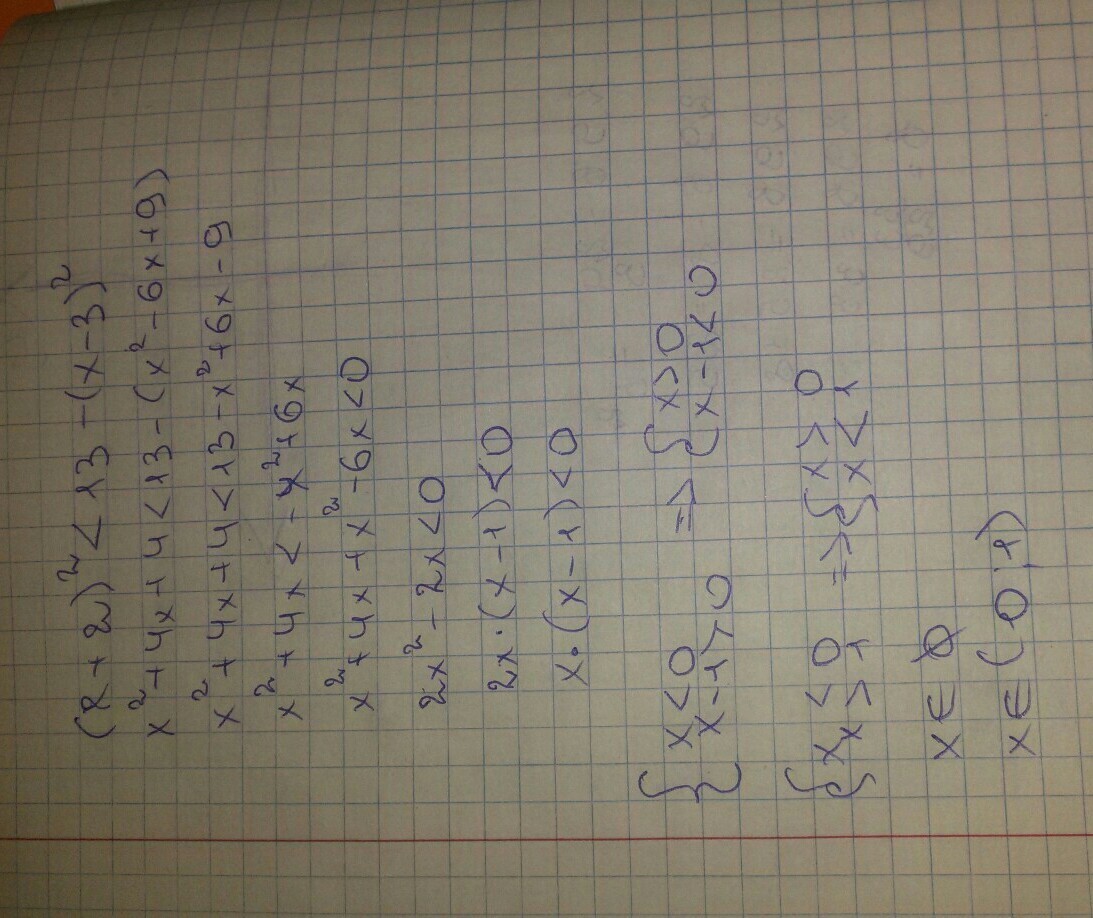 (x+2)² < 13 - (x-3)²
x² + 4x + 4 < 13 - (x² - 6x + 9)
x² + 4x + 4 < 13 - x² + 6x - 9
x² + 4x < - x² + 6x
x² + 4x + x² - 6x < 0
2x² - 2x < 0
2x · (x - 1) < 0
x · (x - 1) < 0
{ x < 0 => { x > 0
x - 1 > 0 x - 1 < 0
{ x < 0 => { x > 0
x > 1 x < 1
x ∈ ∅
x ∈ (0; 1)